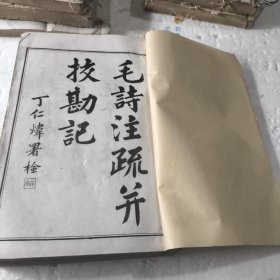 毛詩注疏并
挍勘記
丁仁煒署檢